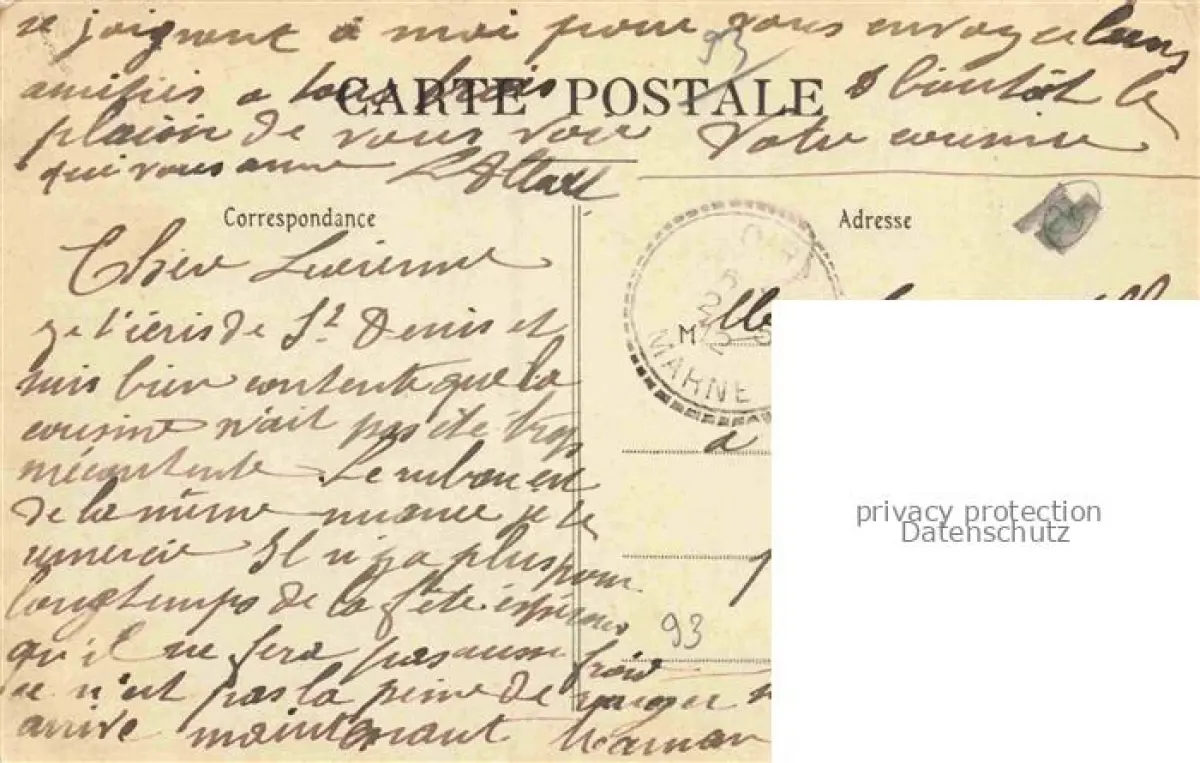 se joignent à moi pour vous envoyer leurs
amitiés a tous trois
CARTE POSTALE
a bientôt le
plaisir de vous voir Votre cousine
qui vous aime L Allard
93
Correspondance
Adresse
Cher Lucienne
je t'écris de St Denis et
suis bien contente que la
cousine n'ait pas été trop
mécontente Le ruban est
de la même nuance je te
remercie Il n'y a plus pour
longtemps de la fête espérons
qu'il ne fera pas aussi froid
ce n'est pas la peine de
arrive maintenant Maman
MARNE
M lle
a
93
privacy protection
Datenschutz